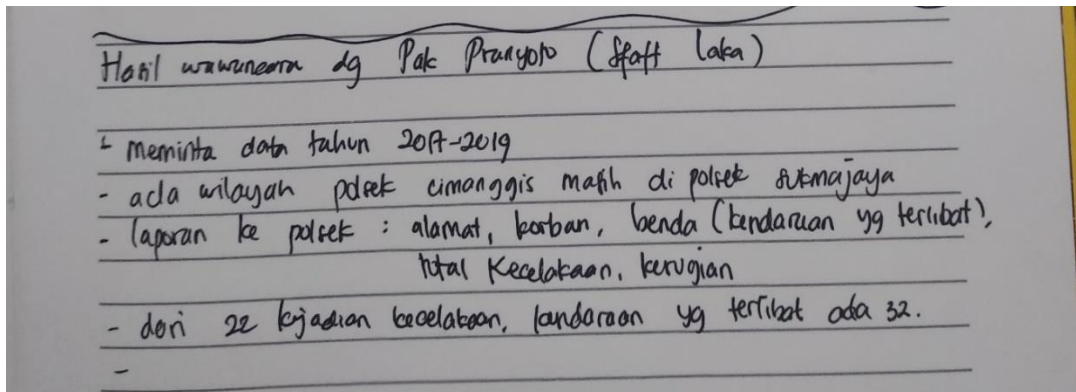 Hasil wawancara dg Pak Pranyoto (Staff laka)
- meminta data tahun 2017-2019
- ada wilayah polsek cimanggis masih di polsek sukmajaya
- laporan ke polsek : alamat, korban, benda (kendaraan yg terlibat),
total Kecelakaan, kerugian
- dari 22 kejadian kecelakaan, kendaraan yg terlibat ada 32.
-